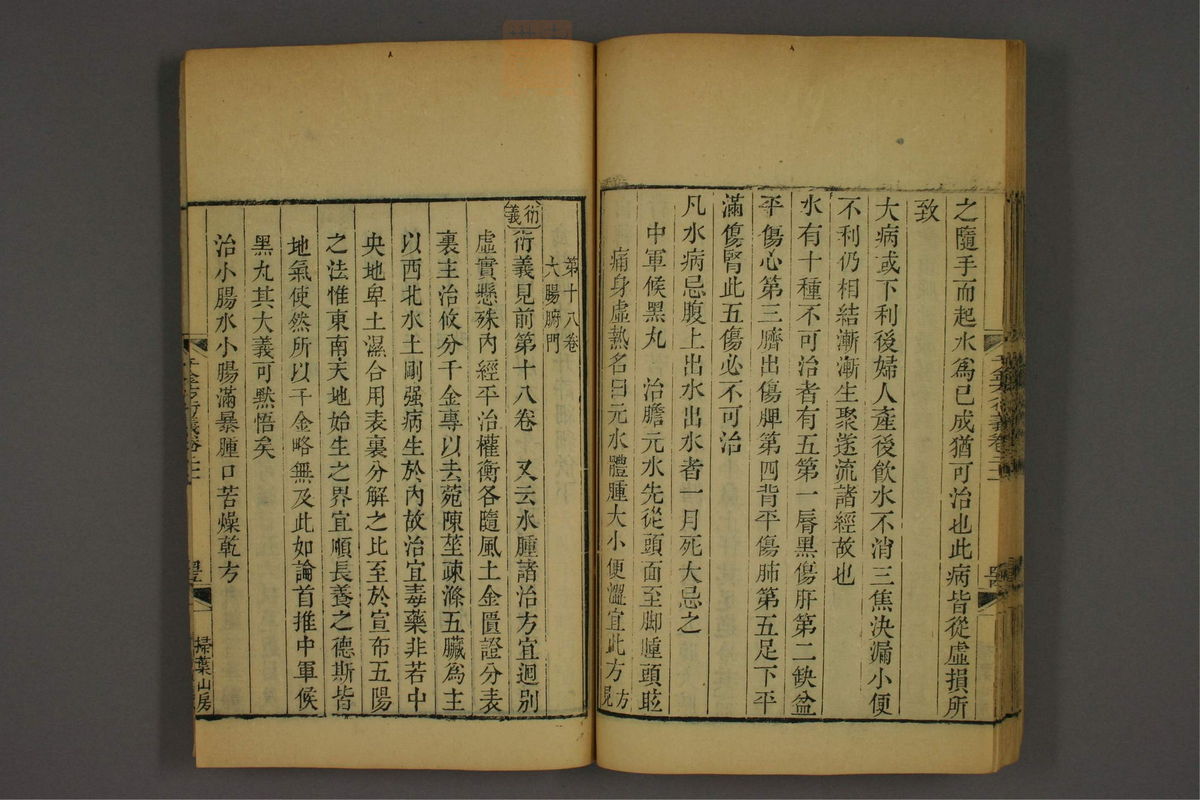 之隨手而起水爲已成猶可治也此病皆從虛損所
致
大病或下利後婦人產後飲水不消三焦決漏小便
不利仍相結漸漸生聚遂流諸經故也
水有十種不可治者有五第一脣黑傷肝第二缺盆
平傷心第三臍出傷脾第四背平傷肺第五足下平
滿傷腎此五傷必不可治
凡水病忌腹上出水出水者一月死大忌之
中軍候黑丸 治膽元水先從頭面至脚腫頭眩
痛身虛熱名曰元水體腫大小便澀宜此方方見
第十八卷
大腸腑門
衍義 衍義見前第十八卷 又云水腫諸治方宜迥別
虛實懸殊內經平治權衡各隨風土金匱證分表
裏主治攸分千金專以去菀陳莝疎滌五臟爲主
以西北水土剛强病生於內故治宜毒藥非若中
央地卑土濕合用表裏分解之比至於宣布五陽
之法惟東南天地始生之界宜順長養之德斯皆
地氣使然所以千金略無及此如論首推中軍候
黑丸其大義可默悟矣
治小腸水小腸滿暴腫口苦燥乾方
掃葉山房